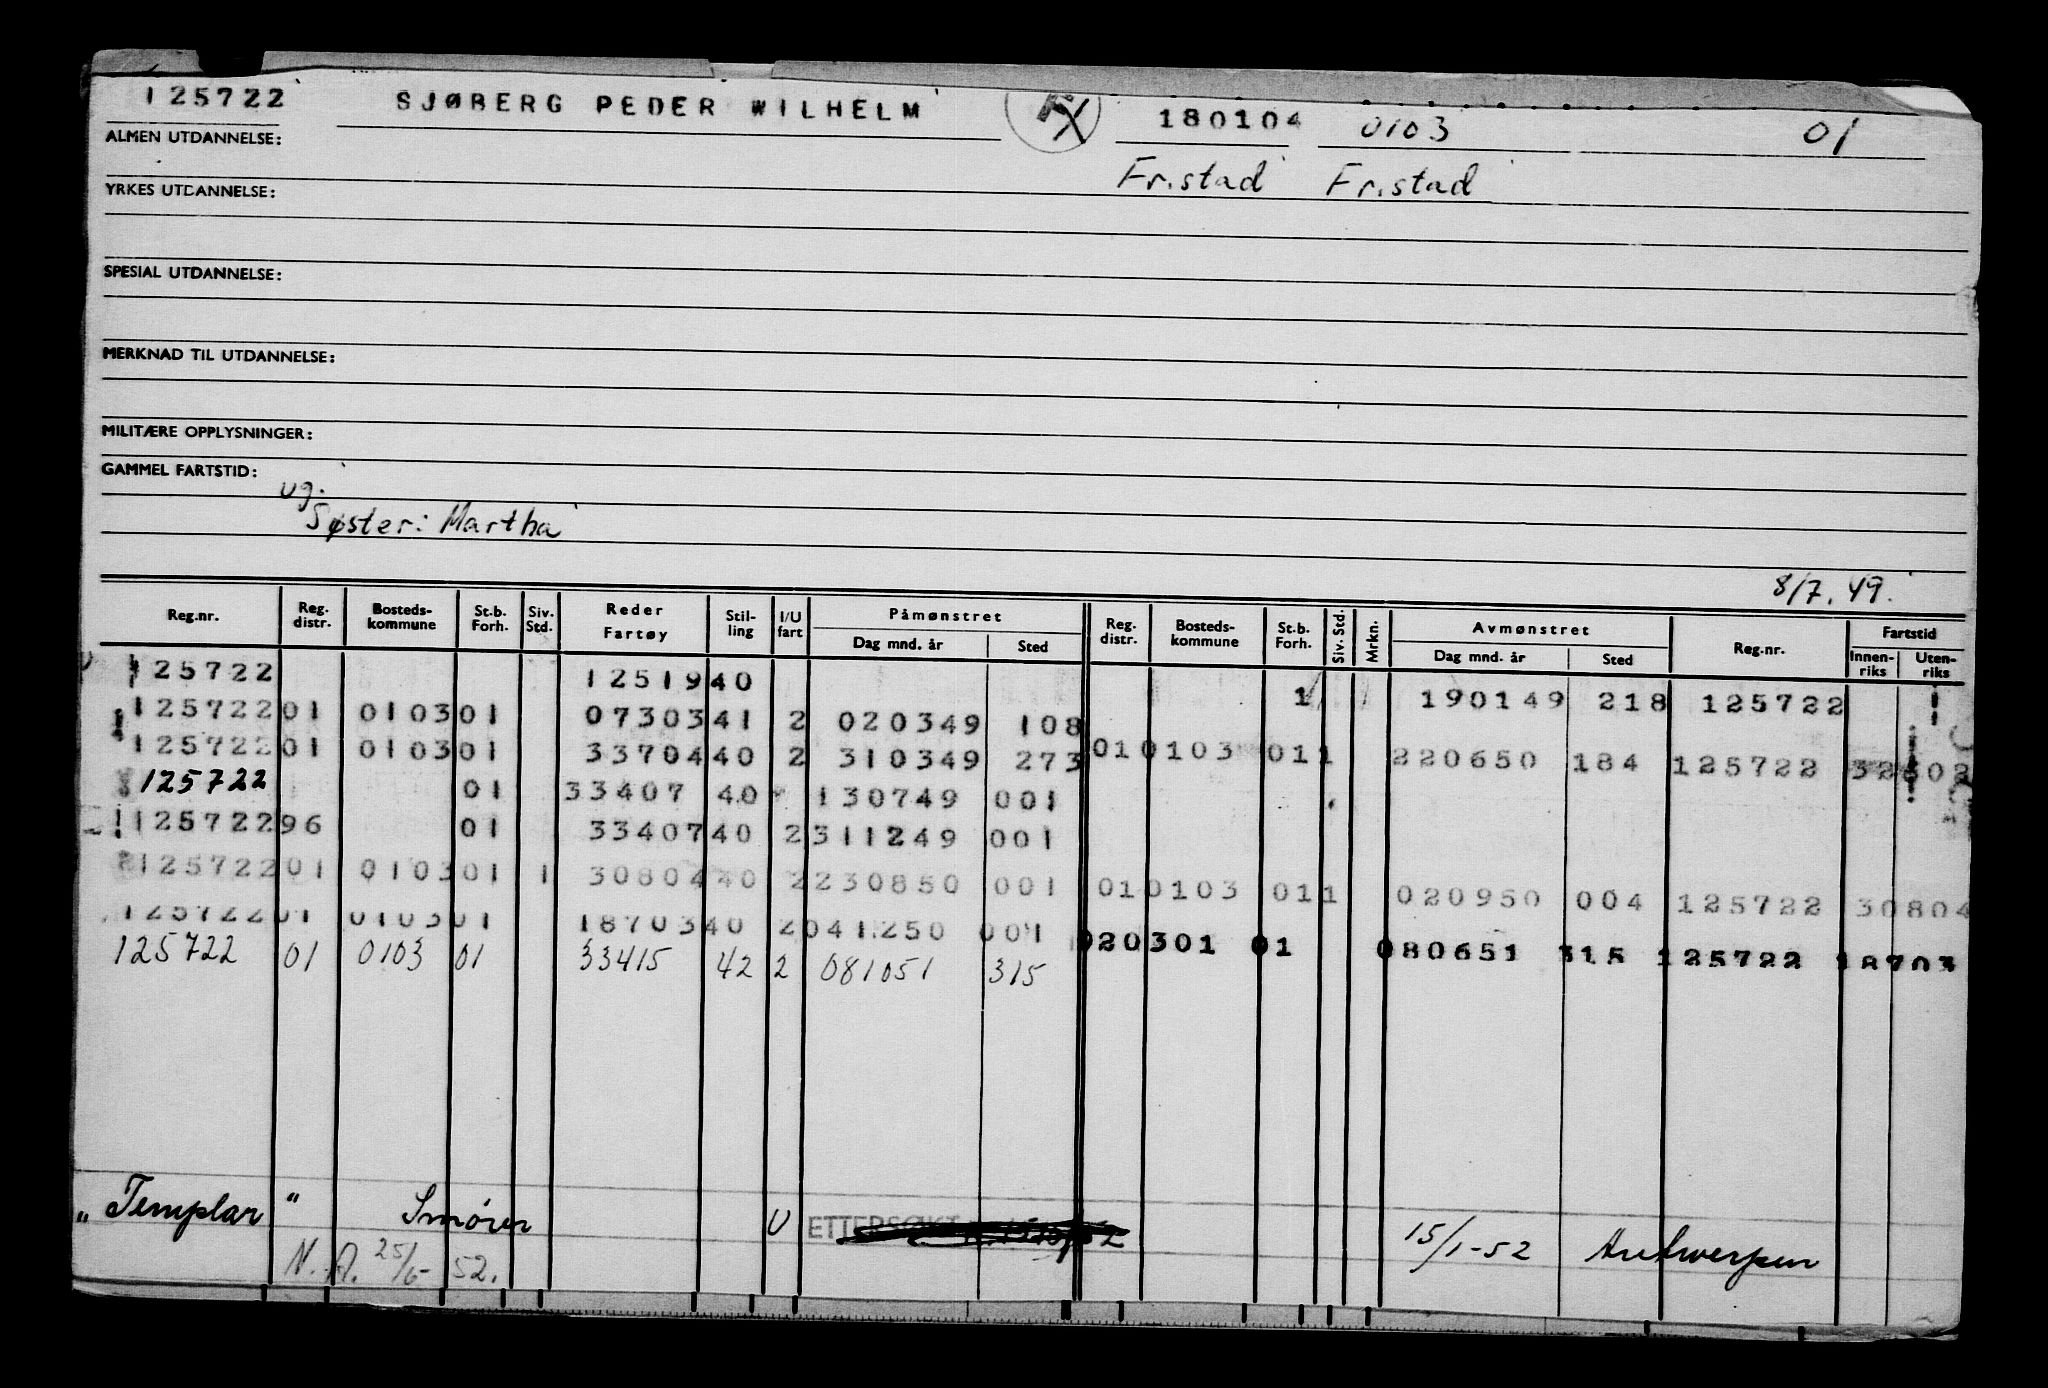 125722 SJØBERG PEDER WILHELM 180104 0103 01
ALMEN UTDANNELSE:
Fr.stad Fr.stad
YRKES UTDANNELSE:
SPESIAL UTDANNELSE:
MERKNAD TIL UTDANNELSE:
MILITÆRE OPPLYSNINGER:
GAMMEL FARTSTID:
ug.
Søster: Martha
8/7.49.
Reg.nr. Reg. distr. Bosteds-kommune St.b. Forh. Siv. Std. Reder Fartøy Stil-ling I/U fart Påmønstret Dag mnd. år Sted Reg. distr. Bosteds-kommune St.b. Forh. Siv. Std. Mrkn. Avmønstret Dag mnd. år Sted Reg.nr. Fartstid Innen-riks Uten-riks
125722 12519 40 1 190149 218 125722
125722 01 0103 01 07303 41 2 020349 108
125722 01 0103 01 33704 40 2 310349 273 01 0103 01 1 220650 184 125722
125722 01 33407 40 130749 001
125722 96 01 33407 40 2 311249 001
125722 01 0103 01 1 30804 40 2 230850 001 01 0103 01 1 020950 004 125722 30804
125722 01 0103 01 18703 40 2 041250 001 020301 01 080651 315 125722 18703
125722 01 0103 01 33415 42 2 081051 315
„Templar" Smører U ETTERSØKT 15/1-52 Antwerpen
N.A. 25/6-52.